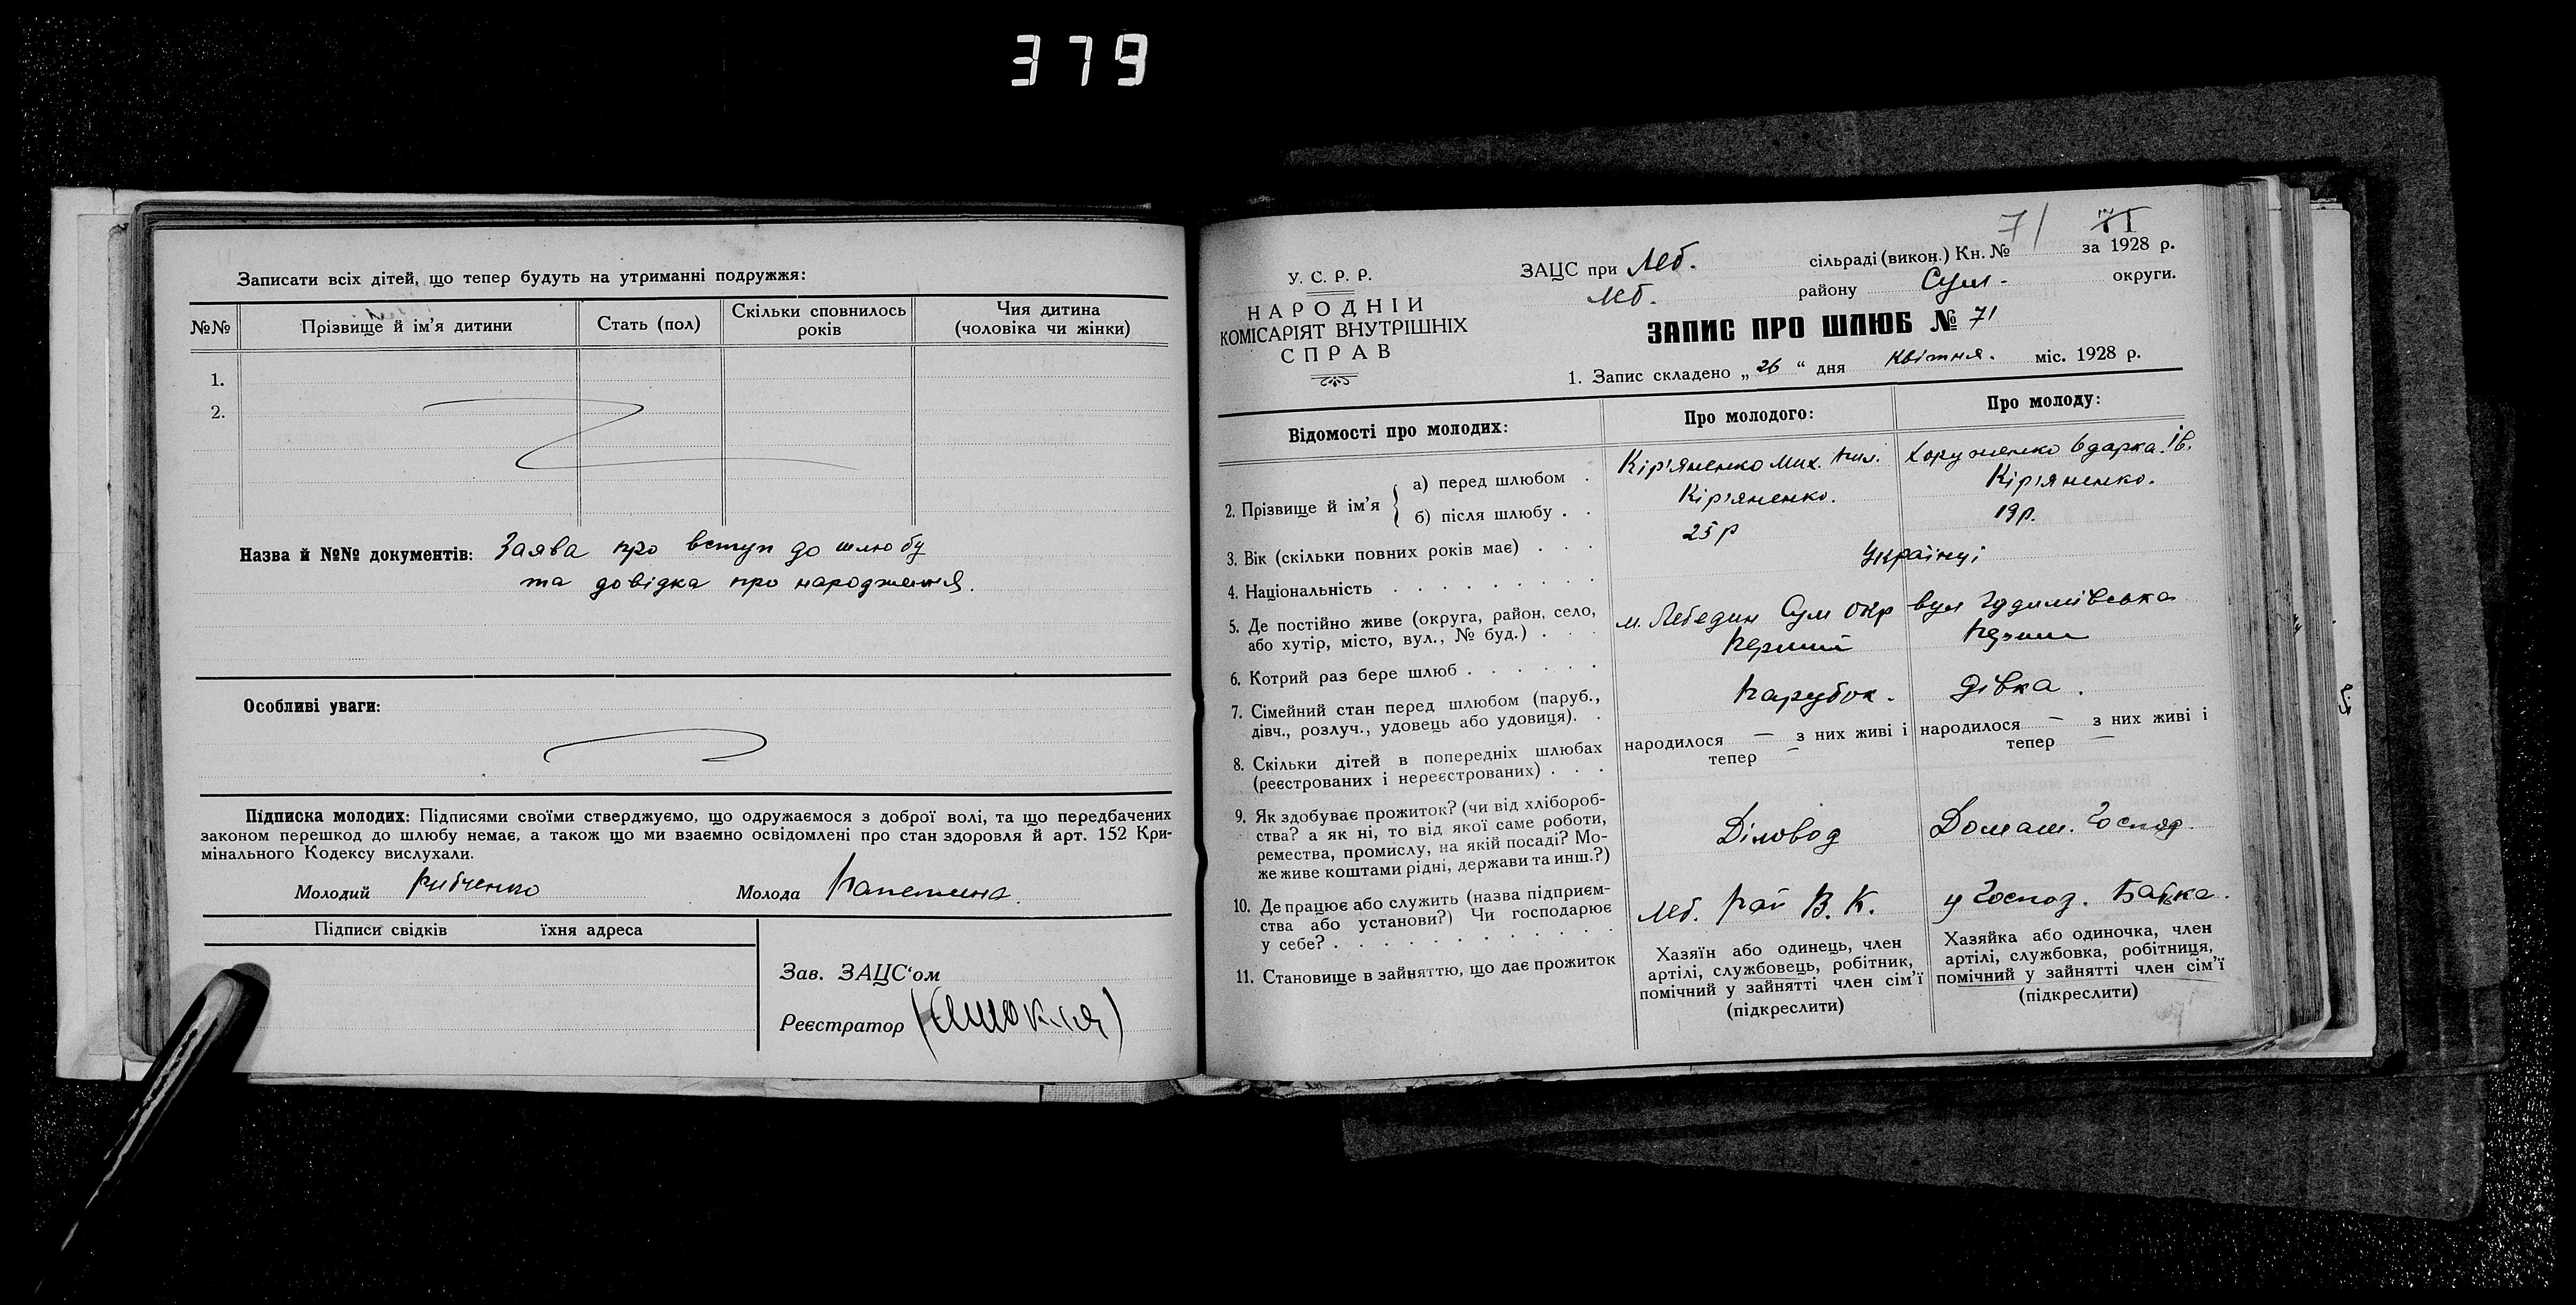 379
Записати всіх дітей, що тепер будуть на утриманні подружжя:
№№ Прізвище й ім'я дитини Стать (пол) Скільки сповнилось років Чия дитина (чоловіка чи жінки)
1.
2.
Назва й №№ документів: Заява про вступ до шлюбу
та довідка про народження.
Особливі уваги:
Підписка молодих: Підписями своїми стверджуємо, що одружаємося з доброї волі, та що передбачених
законом перешкод до шлюбу немає, а також що ми взаємно освідомлені про стан здоровля й арт. 152 Кри-
мінального Кодексу вислухали.
Молодий Молода
Підписи свідків їхня адреса
Зав. ЗАЦС'ом
Реєстратор
71
У. С. Р. Р.
НАРОДНІЙ
КОМІСАРІЯТ ВНУТРІШНІХ
СПРАВ
ЗАЦС при Леб. сільраді (викон.) Кн. № за 1928 р.
Леб. району Сум. округи.
ЗАПИС ПРО ШЛЮБ № 71
1. Запис складено „26“ дня квітня. міс. 1928 р.
Відомості про молодих: Про молодого: Про молоду:
2. Прізвище й ім'я { а) перед шлюбом . Кір'яненко Мих. Пил. Хоруженко Вдарка. Ів.
б) після шлюбу . . Кір'яненко. Кір'яненко.
3. Вік (скільки повних років має) . . . 25 р 19 р.
4. Національність . . . . . . . Українці
5. Де постійно живе (округа, район, село,
або хутір, місто, вул., № буд.) . . . м. Лебедин Сум окр вул
6. Котрий раз бере шлюб . . . . . . Перший Перший
7. Сімейний стан перед шлюбом (паруб.,
дівч., розлуч., удовець або удовиця). . Парубок. Дівка.
8. Скільки дітей в попередніх шлюбах
(реєстрованих і нереєстрованих) . . .
народилося — з них живі і
тепер —
народилося — з них живі і
тепер —
9. Як здобуває прожиток? (чи від хлібороб-
ства? а як ні, то від якої саме роботи,
ремества, промислу, на якій посаді? Мо-
же живе коштами рідні, держави та инш.?)
Діловод Домаш. Господ.
10. Де працює або служить (назва підприєм-
ства або установи?) Чи господарює
у себе? . . . . . . . . . . . .
Леб. Рай В. К. у Господ. Батька.
11. Становище в зайняттю, що дає прожиток
Хазяїн або одинець, член
артілі, службовець, робітник,
помічний у зайнятті член сім'ї
(підкреслити)
Хазяйка або одиночка, член
артілі, службовка, робітниця,
помічний у зайнятті член сім'ї
(підкреслити)